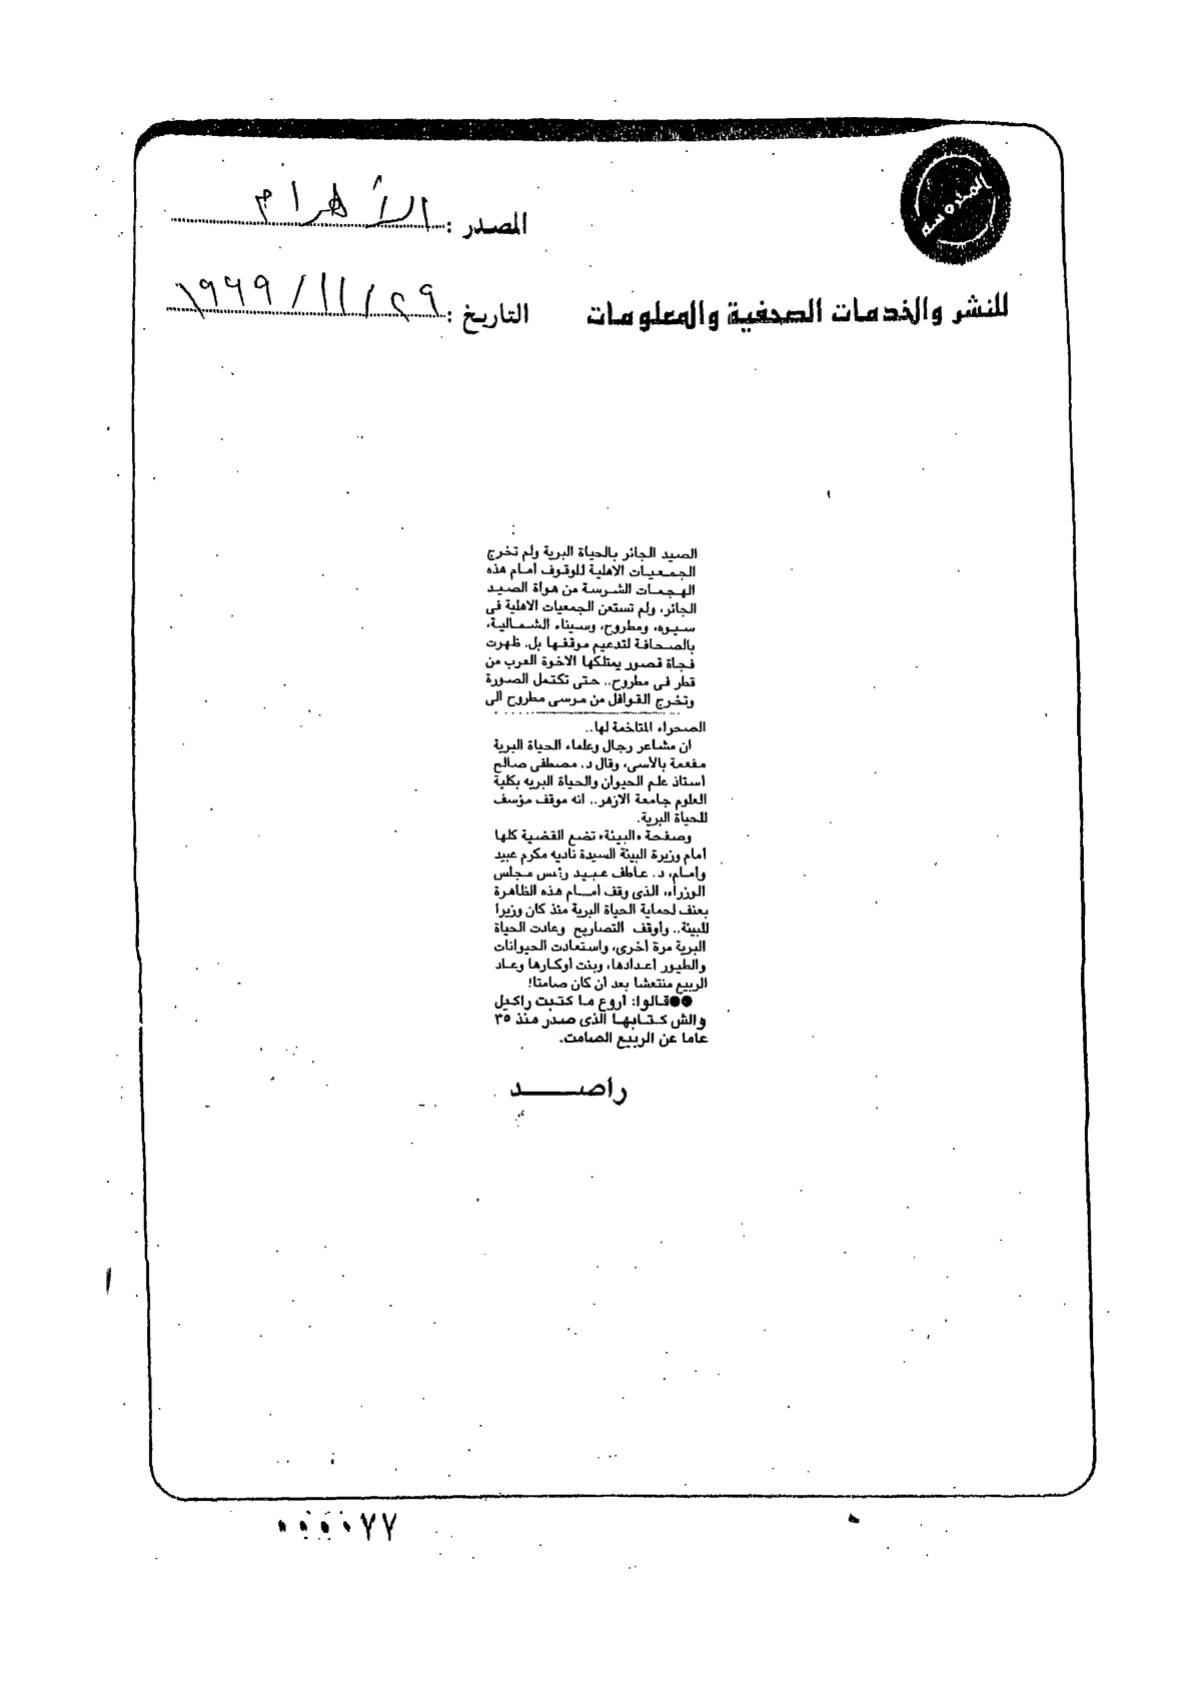 المصدر : الأهرام
للنشر والخدمات الصحفية والمعلومات
التاريخ : ٢٩ / ١١ / ١٩٩٩
الصيد الجائر بالحياة البرية ولم تخرج
الجمعيات الاهلية للوقوف امام هذه
الهجمات الشرسة من هواة الصيد
الجائر، ولم تستعن الجمعيات الاهلية فى
سيوه، ومطروح، وسيناء الشمالية،
بالصحافة لتدعيم موقفها بل. ظهرت
فجاة قصور يمتلكها الاخوة العرب من
قطر فى مطروح.. حتى تكتمل الصورة
وتخرج القوافل من مرسى مطروح الى
الصحراء المتاخمة لها..
ان مشاعر رجال وعلماء الحياة البرية
مفعمة بالأسى، وقال د. مصطفى صالح
أستاذ علم الحيوان والحياة البريه بكلية
العلوم جامعة الازهر.. انه موقف مؤسف
للحياة البرية.
وصفحة «البيئة» تضع القضية كلها
أمام وزيرة البيئة السيدة ناديه مكرم عبيد
وأمام، د. عاطف عبيد رئس مجلس
الوزراء، الذى وقف أمام هذه الظاهرة
بعنف لحماية الحياة البرية منذ كان وزيرا
للبيئة.. وأوقف التصاريح وعادت الحياة
البرية مرة أخرى، واستعادت الحيوانات
والطيور أعدادها، وبنت أوكارها وعاد
الربيع منتعشا بعد أن كان صامتا!
●●قالوا: أروع ما كتبت راكيل
والش كتابها الذى صدر منذ ٣٥
عاما عن الربيع الصامت.
راصد
٠٠٠٠٧٧